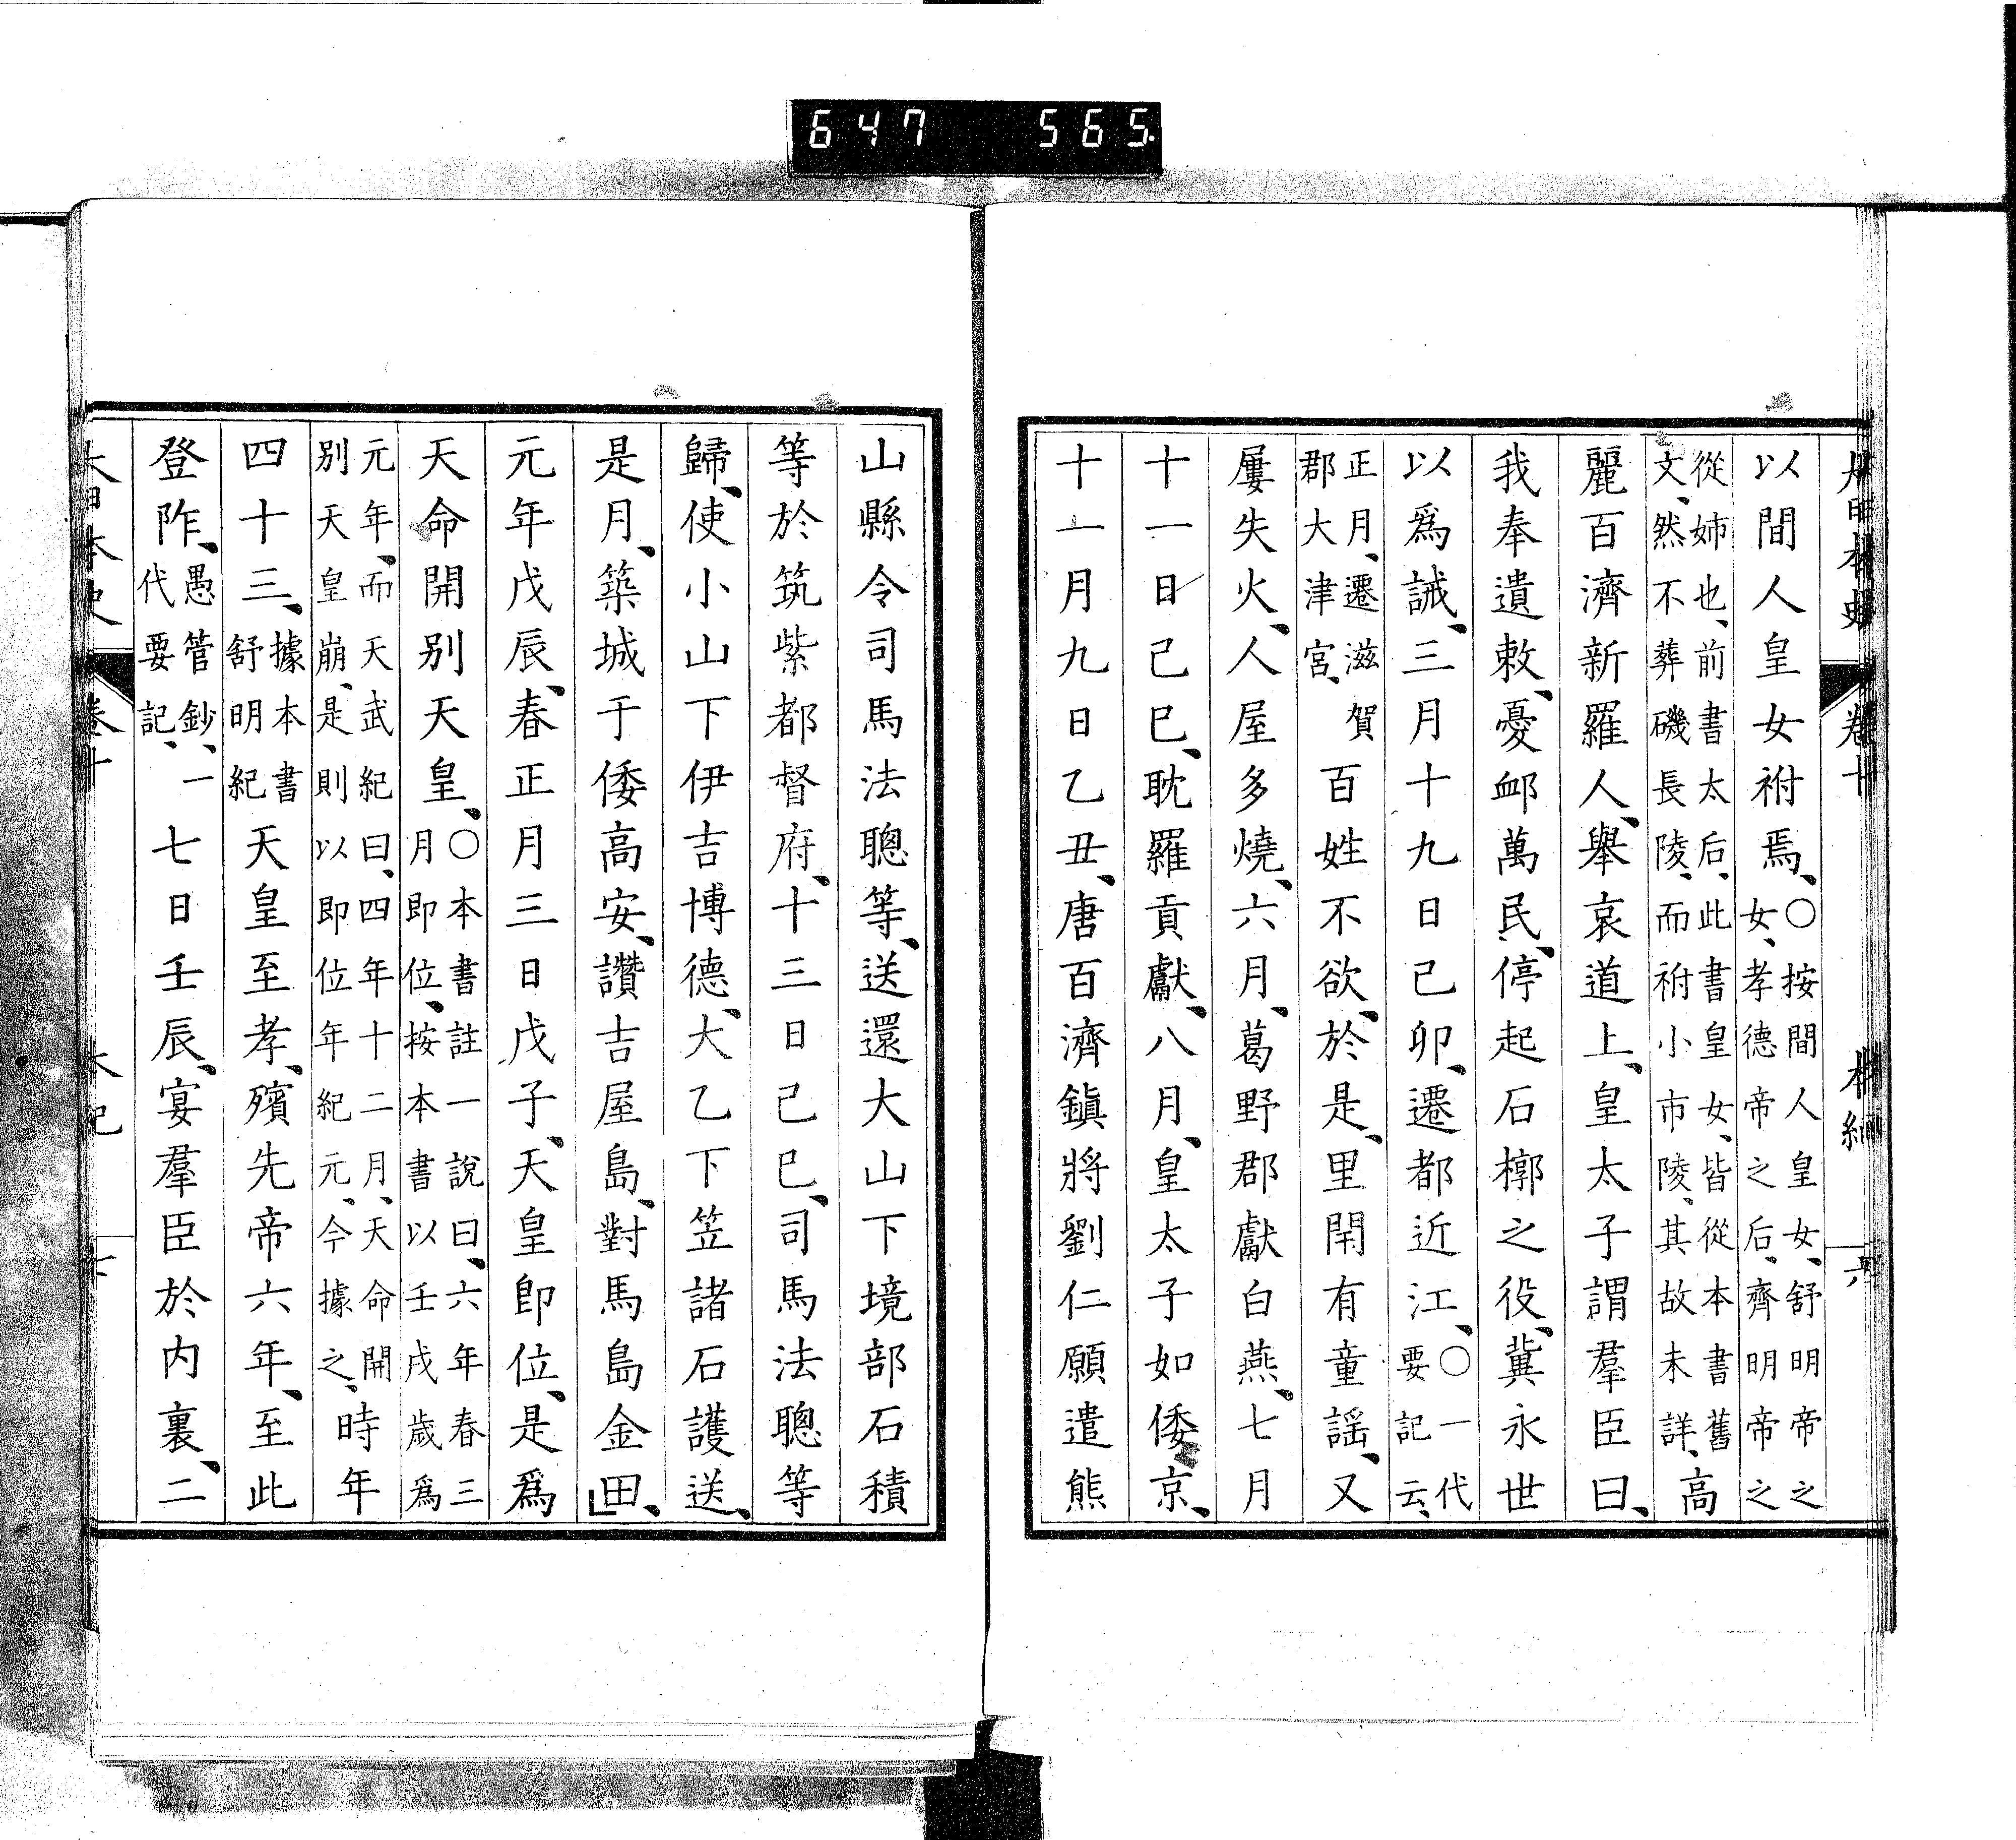 647 565
大日本史 卷十 本紀 六
以間人皇女祔焉、○按間人皇女、舒明帝之女、孝德帝之后、齊明帝之
從姉也、前書太后、此書皇女、皆從本書舊文、然不葬磯長陵、而祔小市陵、其故未詳、高
麗百濟新羅人、擧哀道上、皇太子謂羣臣曰、
我奉遺敕、憂卹萬民、停起石槨之役、冀永世
以爲誡、三月十九日己卯、遷都近江、○一代要記云、
正月、遷滋賀郡大津宮、百姓不欲、於是、里閈有童謠、又
屢失火、人屋多燒、六月、葛野郡獻白燕、七月
十一日己巳、耽羅貢獻、八月、皇太子如倭京、
十一月九日乙丑、唐百濟鎭將劉仁願遣熊
山縣令司馬法聰等、送還大山下境部石積
等於筑紫都督府、十三日己巳、司馬法聰等
歸、使小山下伊吉博德、大乙下笠諸石護送、
是月、築城于倭高安、讚吉屋島、對馬島金田、
元年戊辰、春正月三日戊子、天皇卽位、是爲
天命開别天皇、○本書註一說曰、六年春三月卽位、按本書以壬戌歲爲
元年、而天武紀曰、四年十二月、天命開别天皇崩、是則以卽位年紀元、今據之、時年
四十三、據本書舒明紀天皇至孝、殯先帝六年、至此
登阼、愚管鈔、一代要記、七日壬辰、宴羣臣於内裏、二
大日本史 卷十 本紀 七